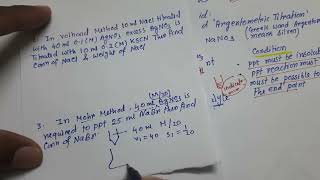 2. In Volhard Method 50 ml NaCl titrated
with 40 ml 0.1(M) AgNO3 excess AgNO3 is
Titrated with 10 ml 0.2(M) KSCN Then find
Conn of NaCl & weight of NaCl
3. In Mohr Method. 40 ml (M/20) AgNO3 is
required to ppt 25 ml NaBr then find
Conn of NaBr
40 ml M/20
V1=40 S1=1/20
"Argentometric Titration"
(Greek word Argentum
means Silver)
NaNO3
Condition
ppt must be insoluble
ppt reaction must
must be possible to
the end point